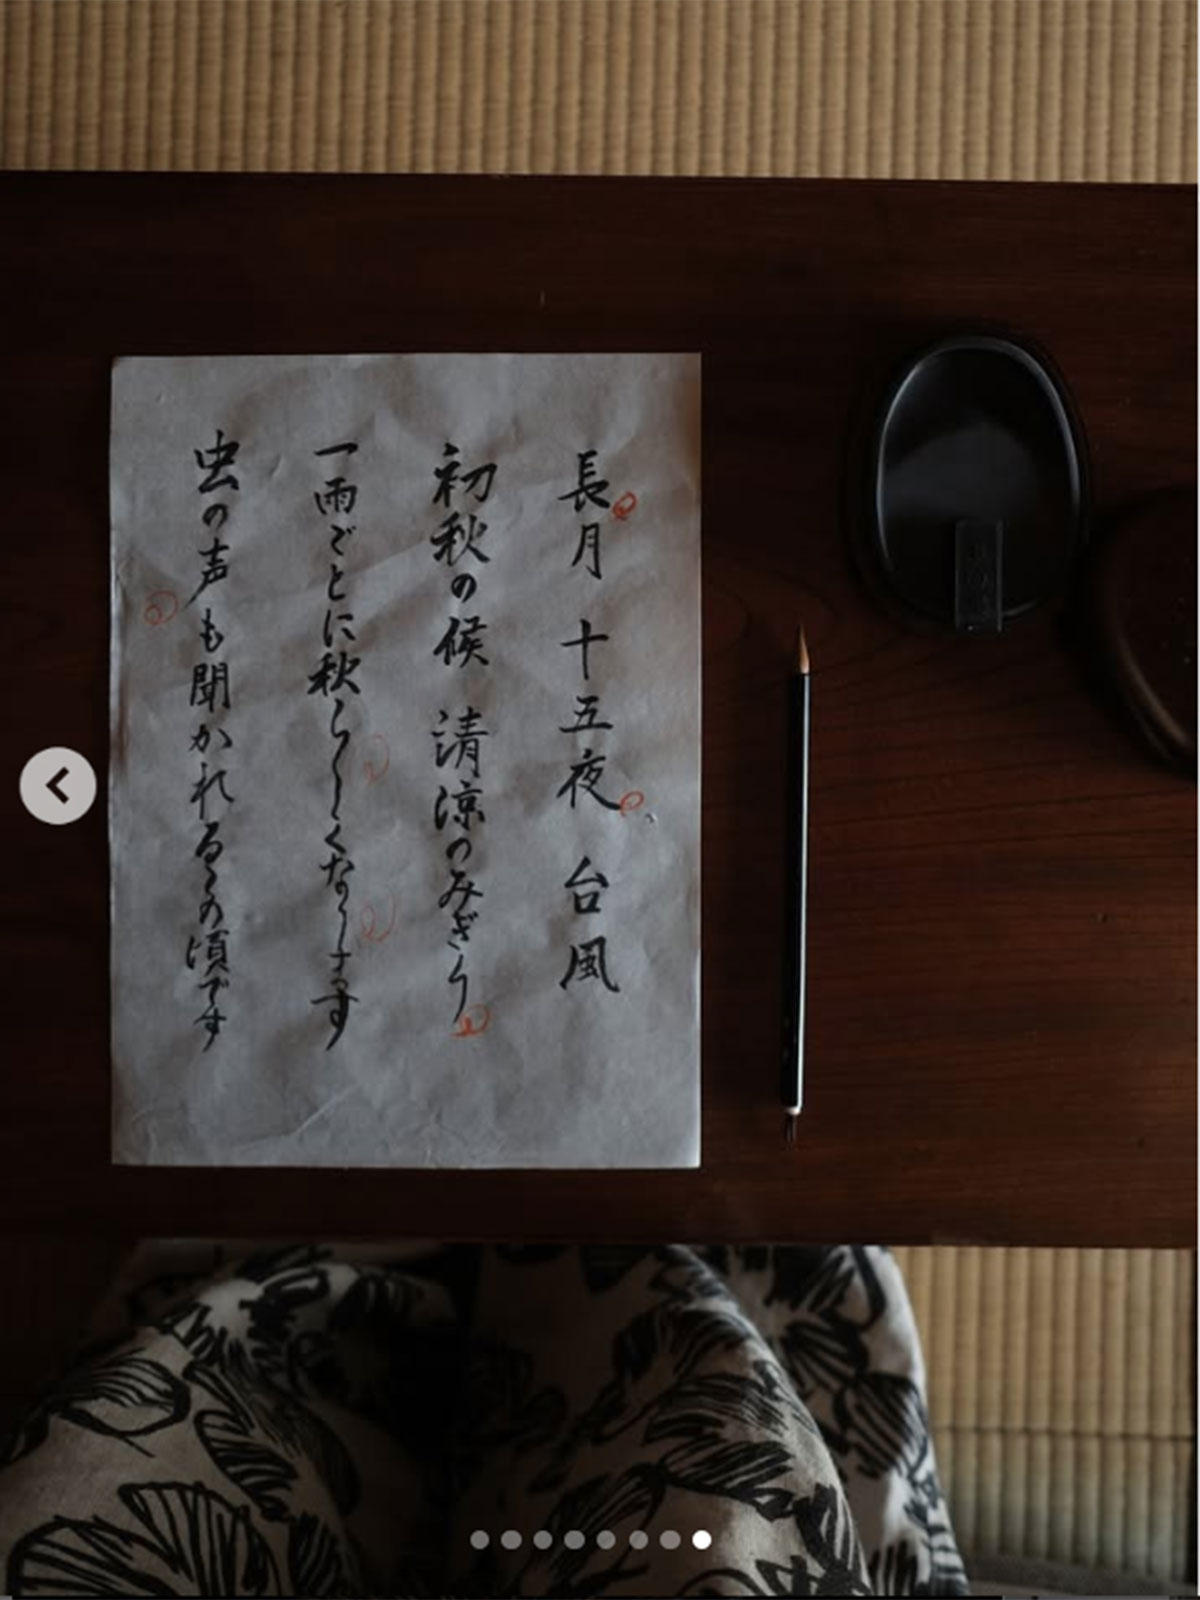 長月 十五夜 台風
初秋の候 清涼のみぎり
一雨ごとに秋らしくなります
虫の声も聞かれるこの頃です